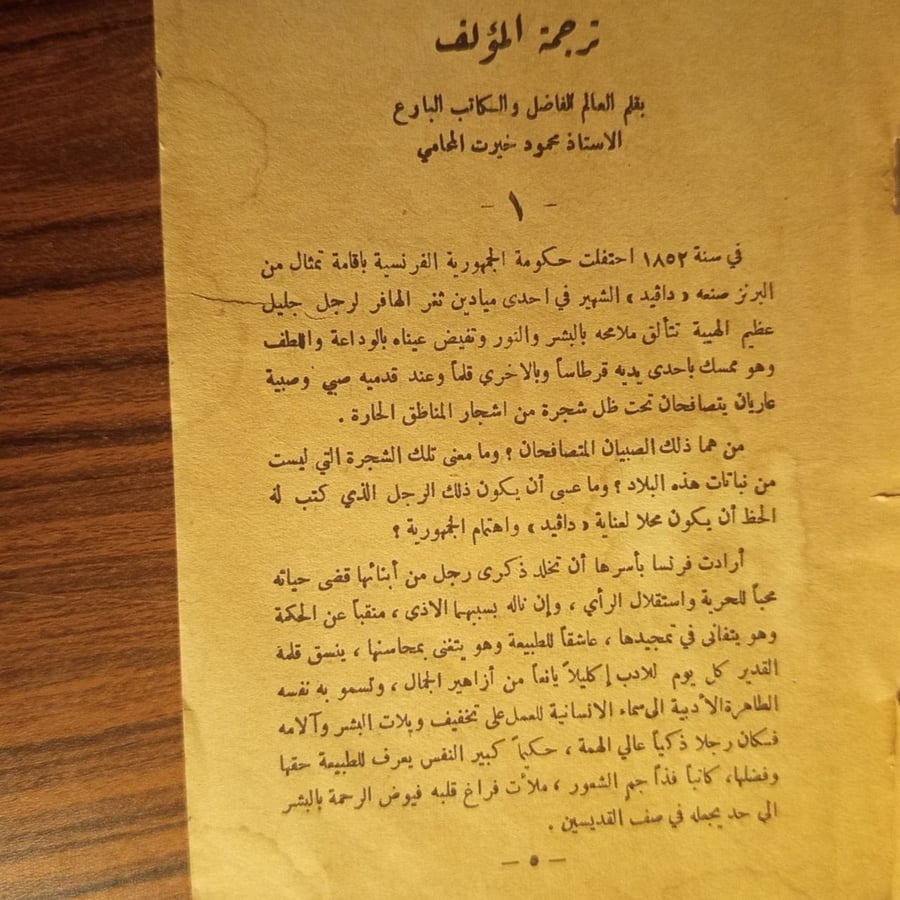 ترجمة المؤلف
بقلم العالم الفاضل والكاتب البارع
الاستاذ محمود خيرت المحامي
- ١ -
في سنة ١٨٥٢ احتفلت حكومة الجمهورية الفرنسية باقامة تمثال من
البرنز صنعه « داڤيد » الشهير في احدى ميادين ثغر الهافر لرجل جليل
عظيم الهيبة تتألق ملامحه بالبشر والنور وتفيض عيناه بالوداعة واللطف
وهو ممسك باحدى يديه قرطاساً وبالاخرى قلماً وعند قدميه صبي وصبية
عاريان يتصافحان تحت ظل شجرة من اشجار المناطق الحارة .
من هما ذلك الصبيان المتصافحان ؟ وما معنى تلك الشجرة التي ليست
من نباتات هذه البلاد ؟ وما عسى أن يكون ذلك الرجل الذي كتب له
الحظ أن يكون محلا لعناية « داڤيد » واهتمام الجمهورية ؟
أرادت فرنسا بأسرها أن تخلد ذكرى رجل من أبنائها قضى حياته
محباً للحرية واستقلال الرأي ، وإن ناله بسببهما الاذى ، منقباً عن الحكمة
وهو يتفانى في تمجيدها ، عاشقاً للطبيعة وهو يتغنى بمحاسنها ، ينسق قلمه
القدير كل يوم للادب إكليلاً يانعاً من أزاهير الجمال ، وتسمو به نفسه
الطاهرة الأدبية الى سماء الانسانية للعمل على تخفيف ويلات البشر وآلامه
فكان رجلا ذكياً عالي الهمة ، حكيماً كبير النفس يعرف للطبيعة حقها
وفضلها، كاتباً فذاً جم الشعور ، ملأت فراغ قلبه فيوض الرحمة بالبشر
الى حد يجعله في صف القديسين .
— ٥ —